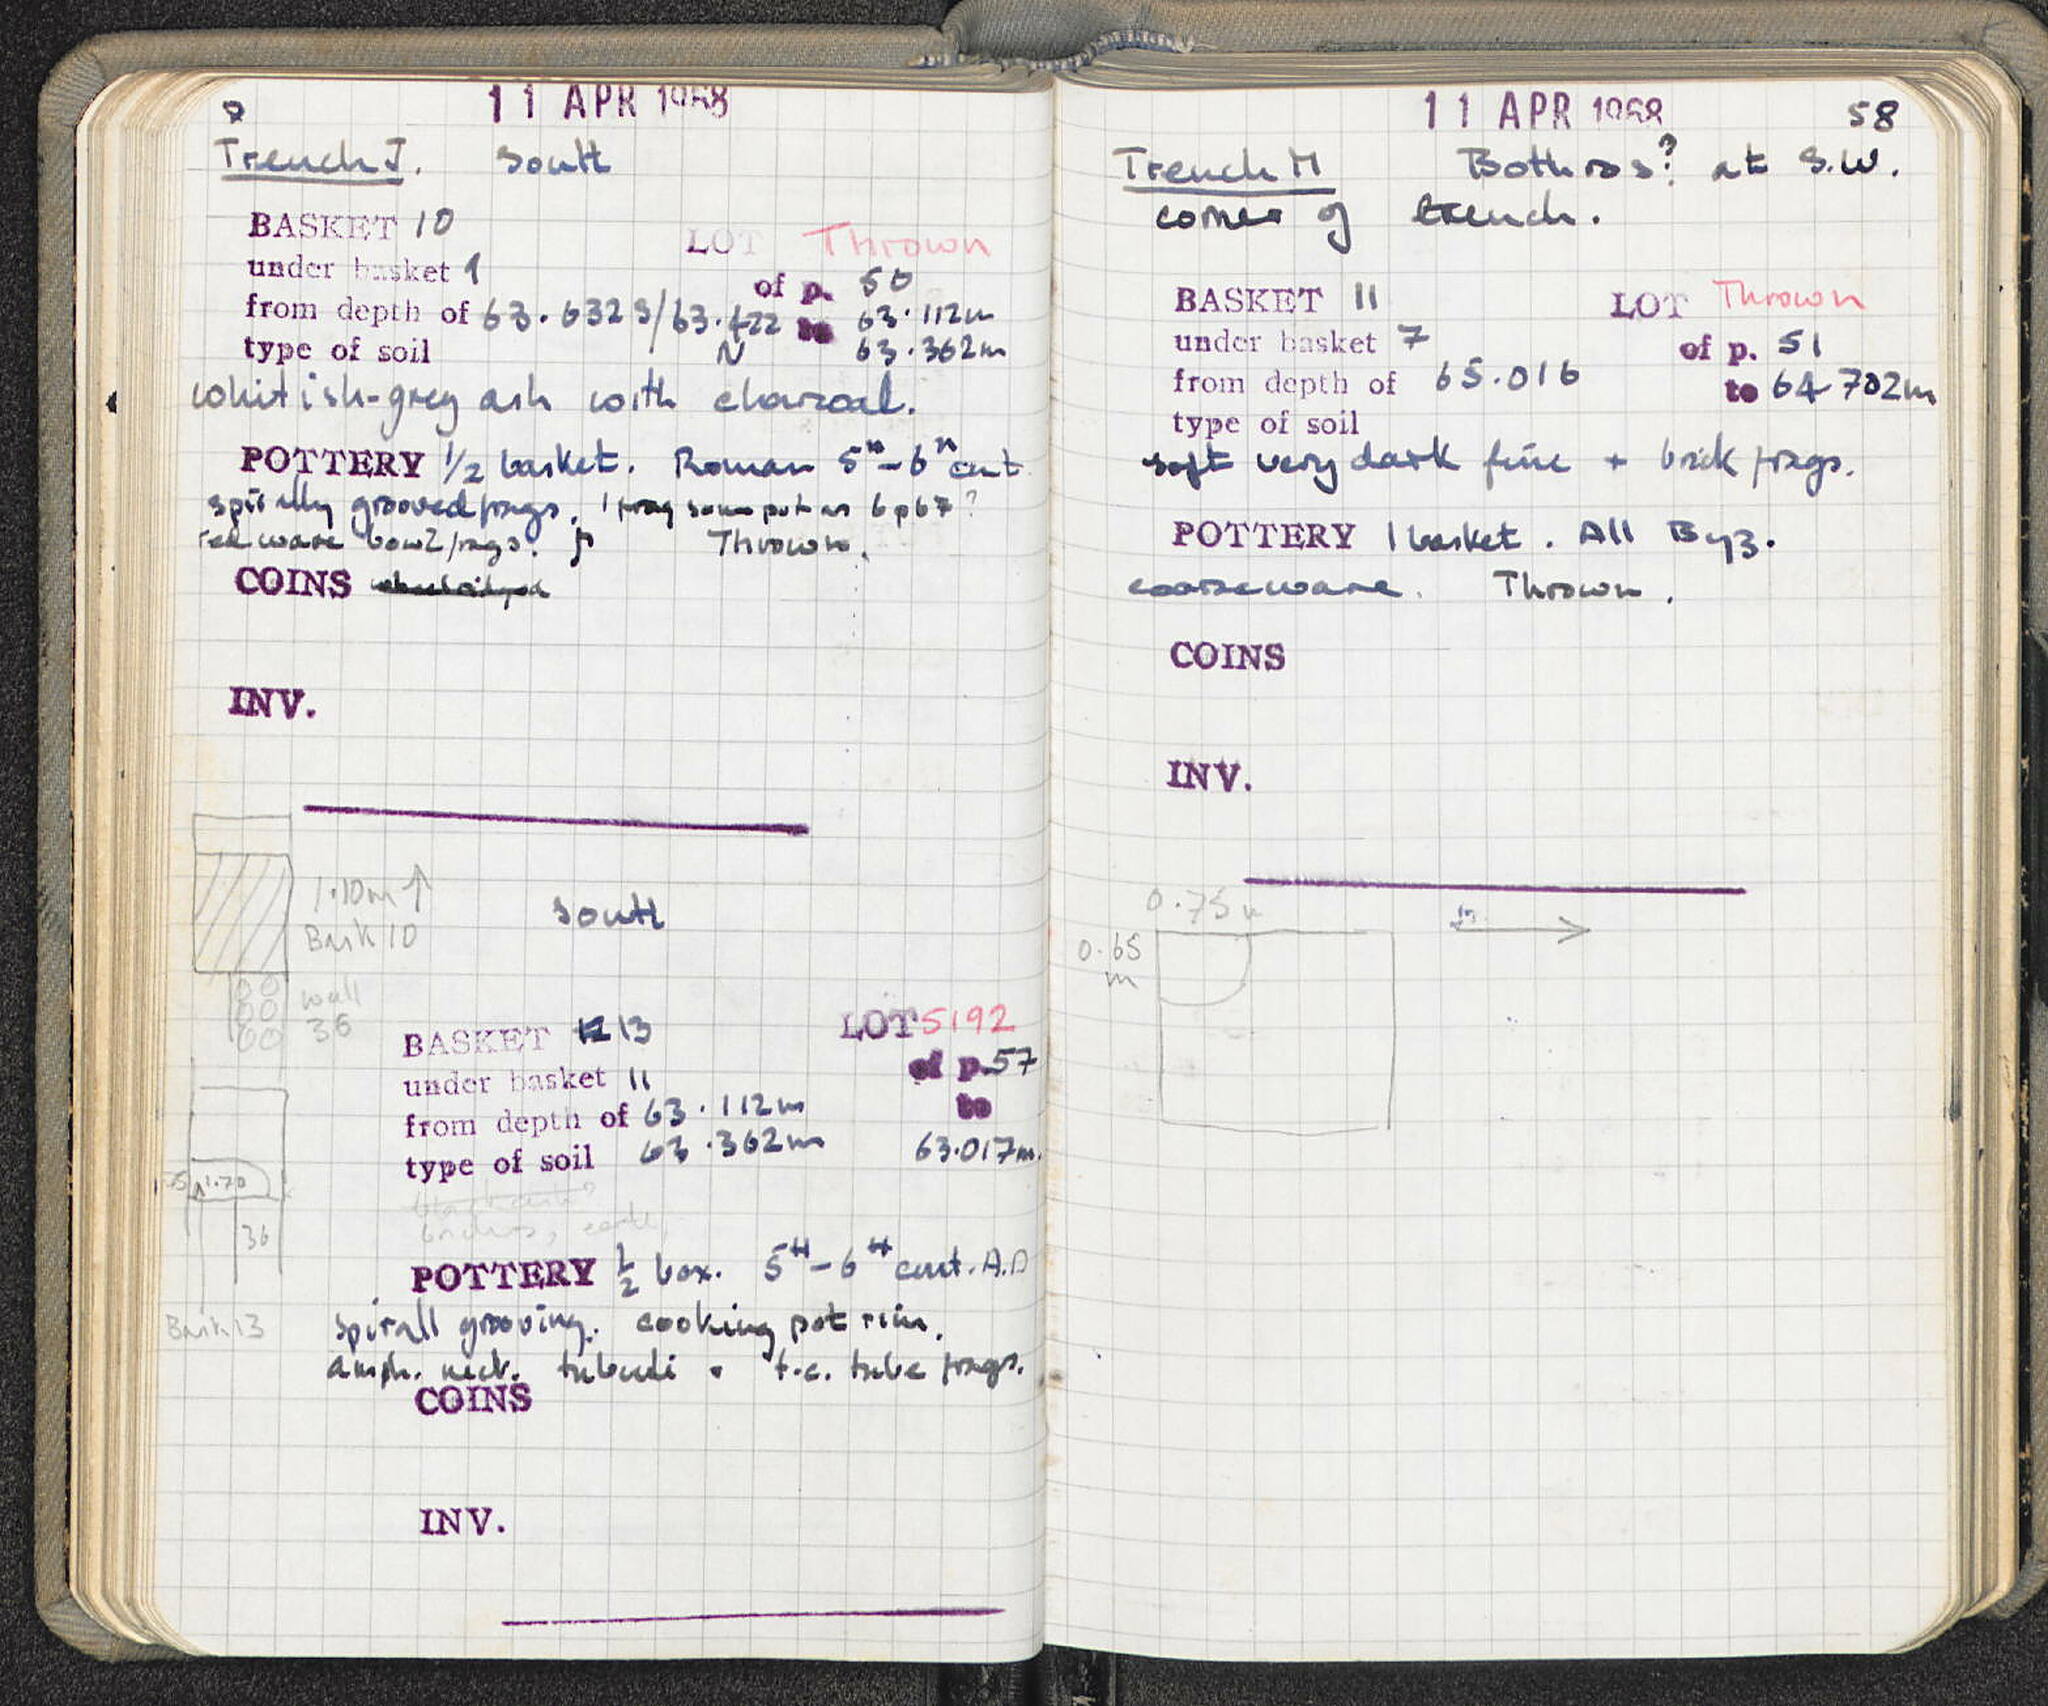 11 APR 1968
Trench J. South
BASKET 10
LOT Thrown
under basket 9
of p. 50
from depth of 63.632 S/63.422 to 63.112m
type of soil N 63.362m
whitish-grey ash with charcoal.
POTTERY 1/2 basket. Roman 5th-6th cent
spirally grooved frags. 1 frag same pot as 6 p 67?
red ware bowl frags. Thrown.
COINS
INV.
1.10m ↑
Bask 10
South
wall
36
BASKET 13
LOT 5192
under basket 11
of p. 57
from depth of 63.112m to
type of soil 63.362m 63.017m.
1.70
36
POTTERY 1/2 box. 5th-6th cent. A.D
spirall grooving. cooking pot rim.
Bask 13
amph. neck. tubuli + t.c. tube frags.
COINS
INV.
11 APR 1968
58
Trench M Bothros? at S.W.
corner of trench.
BASKET 11
LOT Thrown
under basket 7
of p. 51
from depth of 65.016
to 64.702m
type of soil
soft very dark fine + brick frags.
POTTERY 1 basket. All Byz.
coarseware. Thrown.
COINS
INV.
0.75m
0.65
m